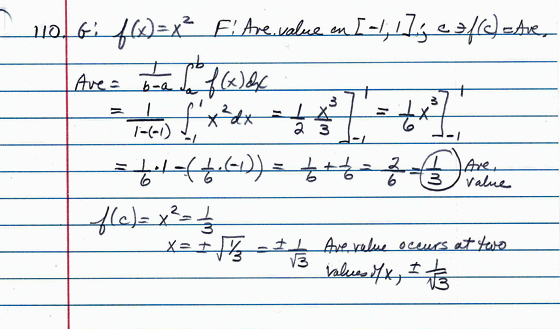 110. G: f(x) = x² F: Ave. value on [-1, 1]; c ∋ f(c) = Ave.
Ave = 1/(b-a) ∫_a^b f(x)dx
= 1/(1-(-1)) ∫_{-1}^1 x² dx = 1/2 x³/3 ]_{-1}^1 = 1/6 x³ ]_{-1}^1
= 1/6 · 1 - (1/6 · (-1)) = 1/6 + 1/6 = 2/6 = 1/3 Ave. value
f(c) = x² = 1/3
x = ± √(1/3) = ± 1/√3 Ave value occurs at two
values of x, ± 1/√3